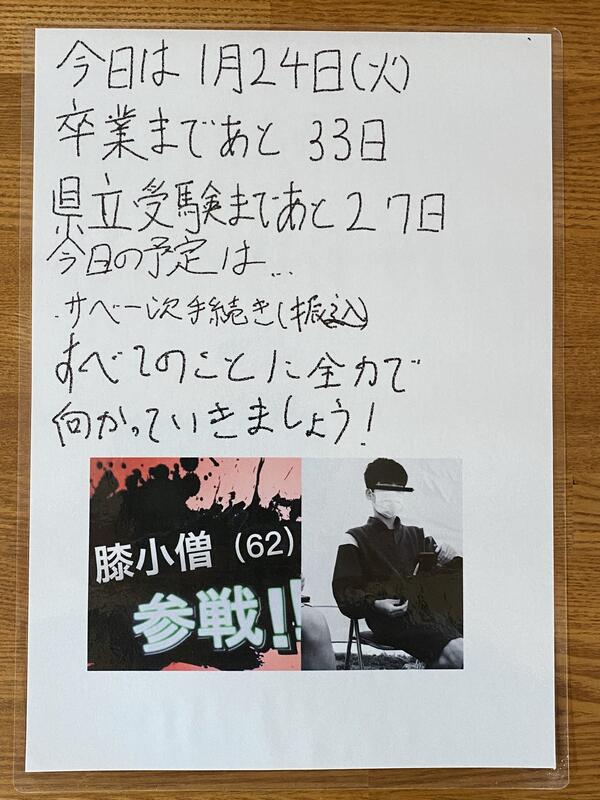 今日は1月24日(火)
卒業まであと 33日
県立受験まであと27日
今日の予定は...
・サベー次手続き(振込)
すべてのことに全力で
向かっていきましょう!
膝小僧(62)
参戦!!